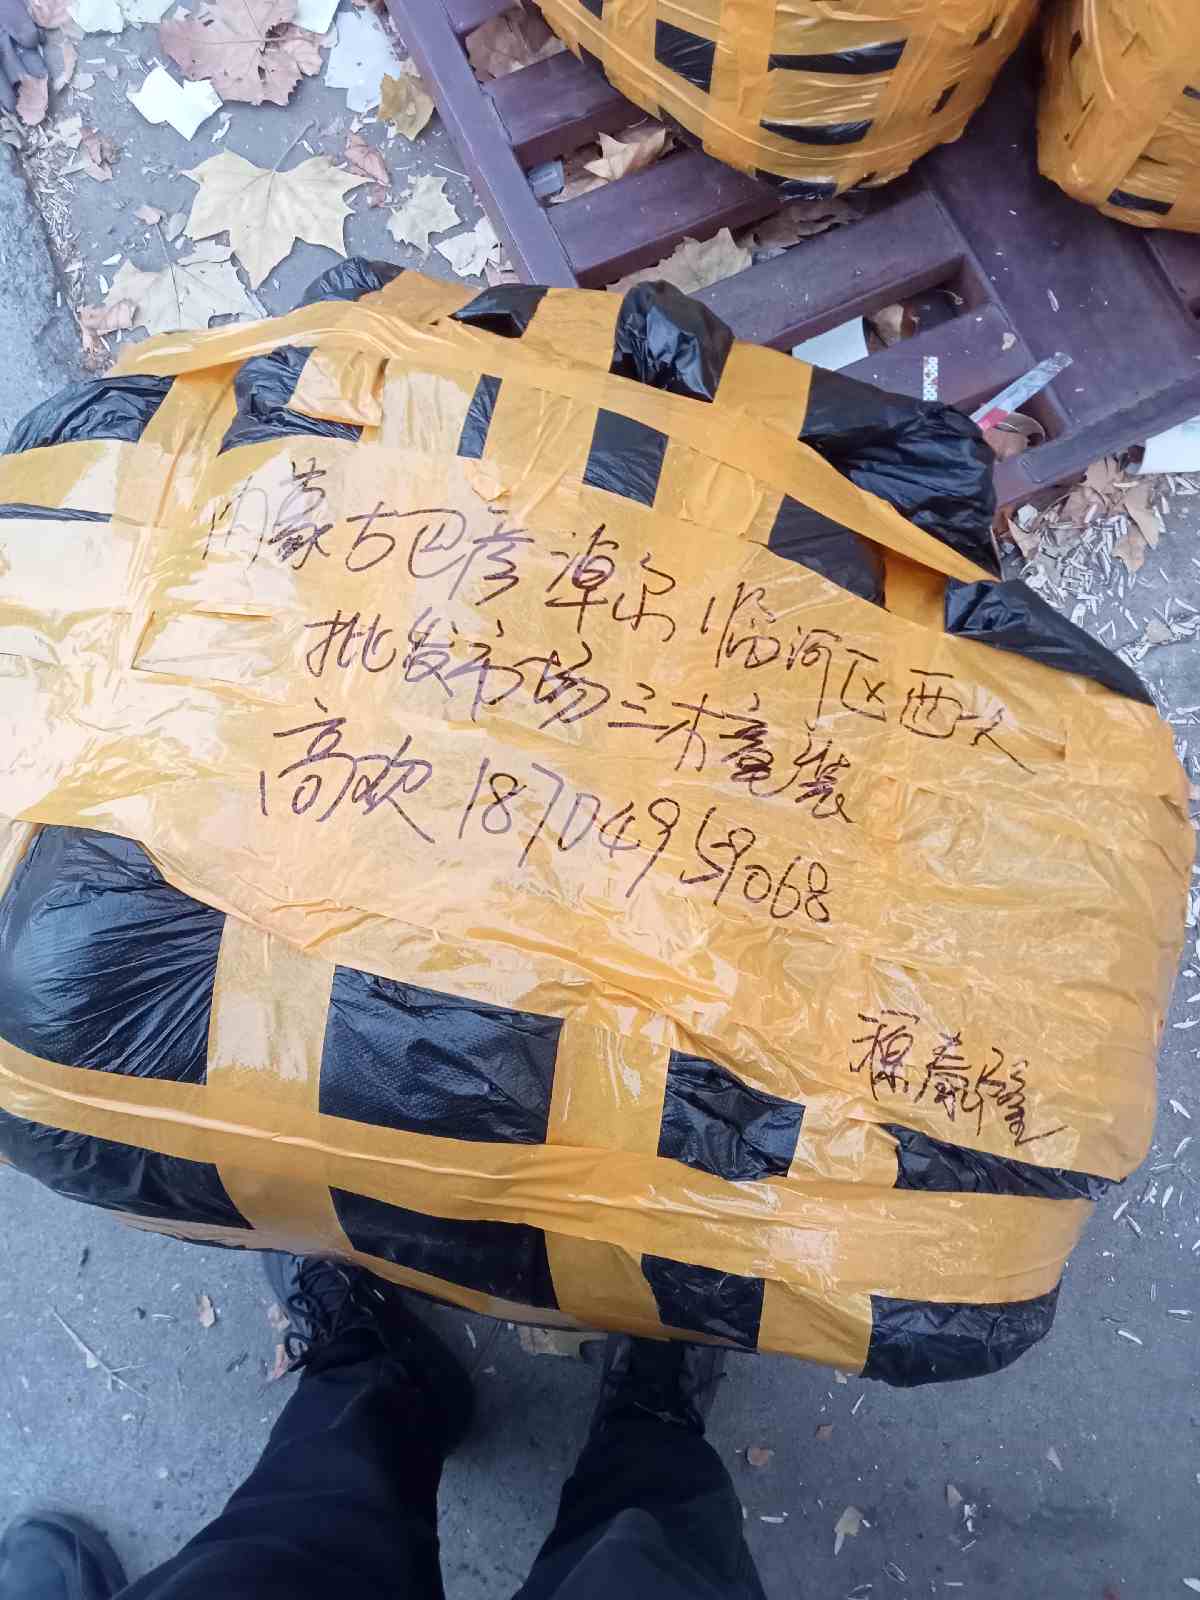 内蒙古巴彦淖尔临河区西大
批发市场三木童装
高欢 18704959068
源泰隆